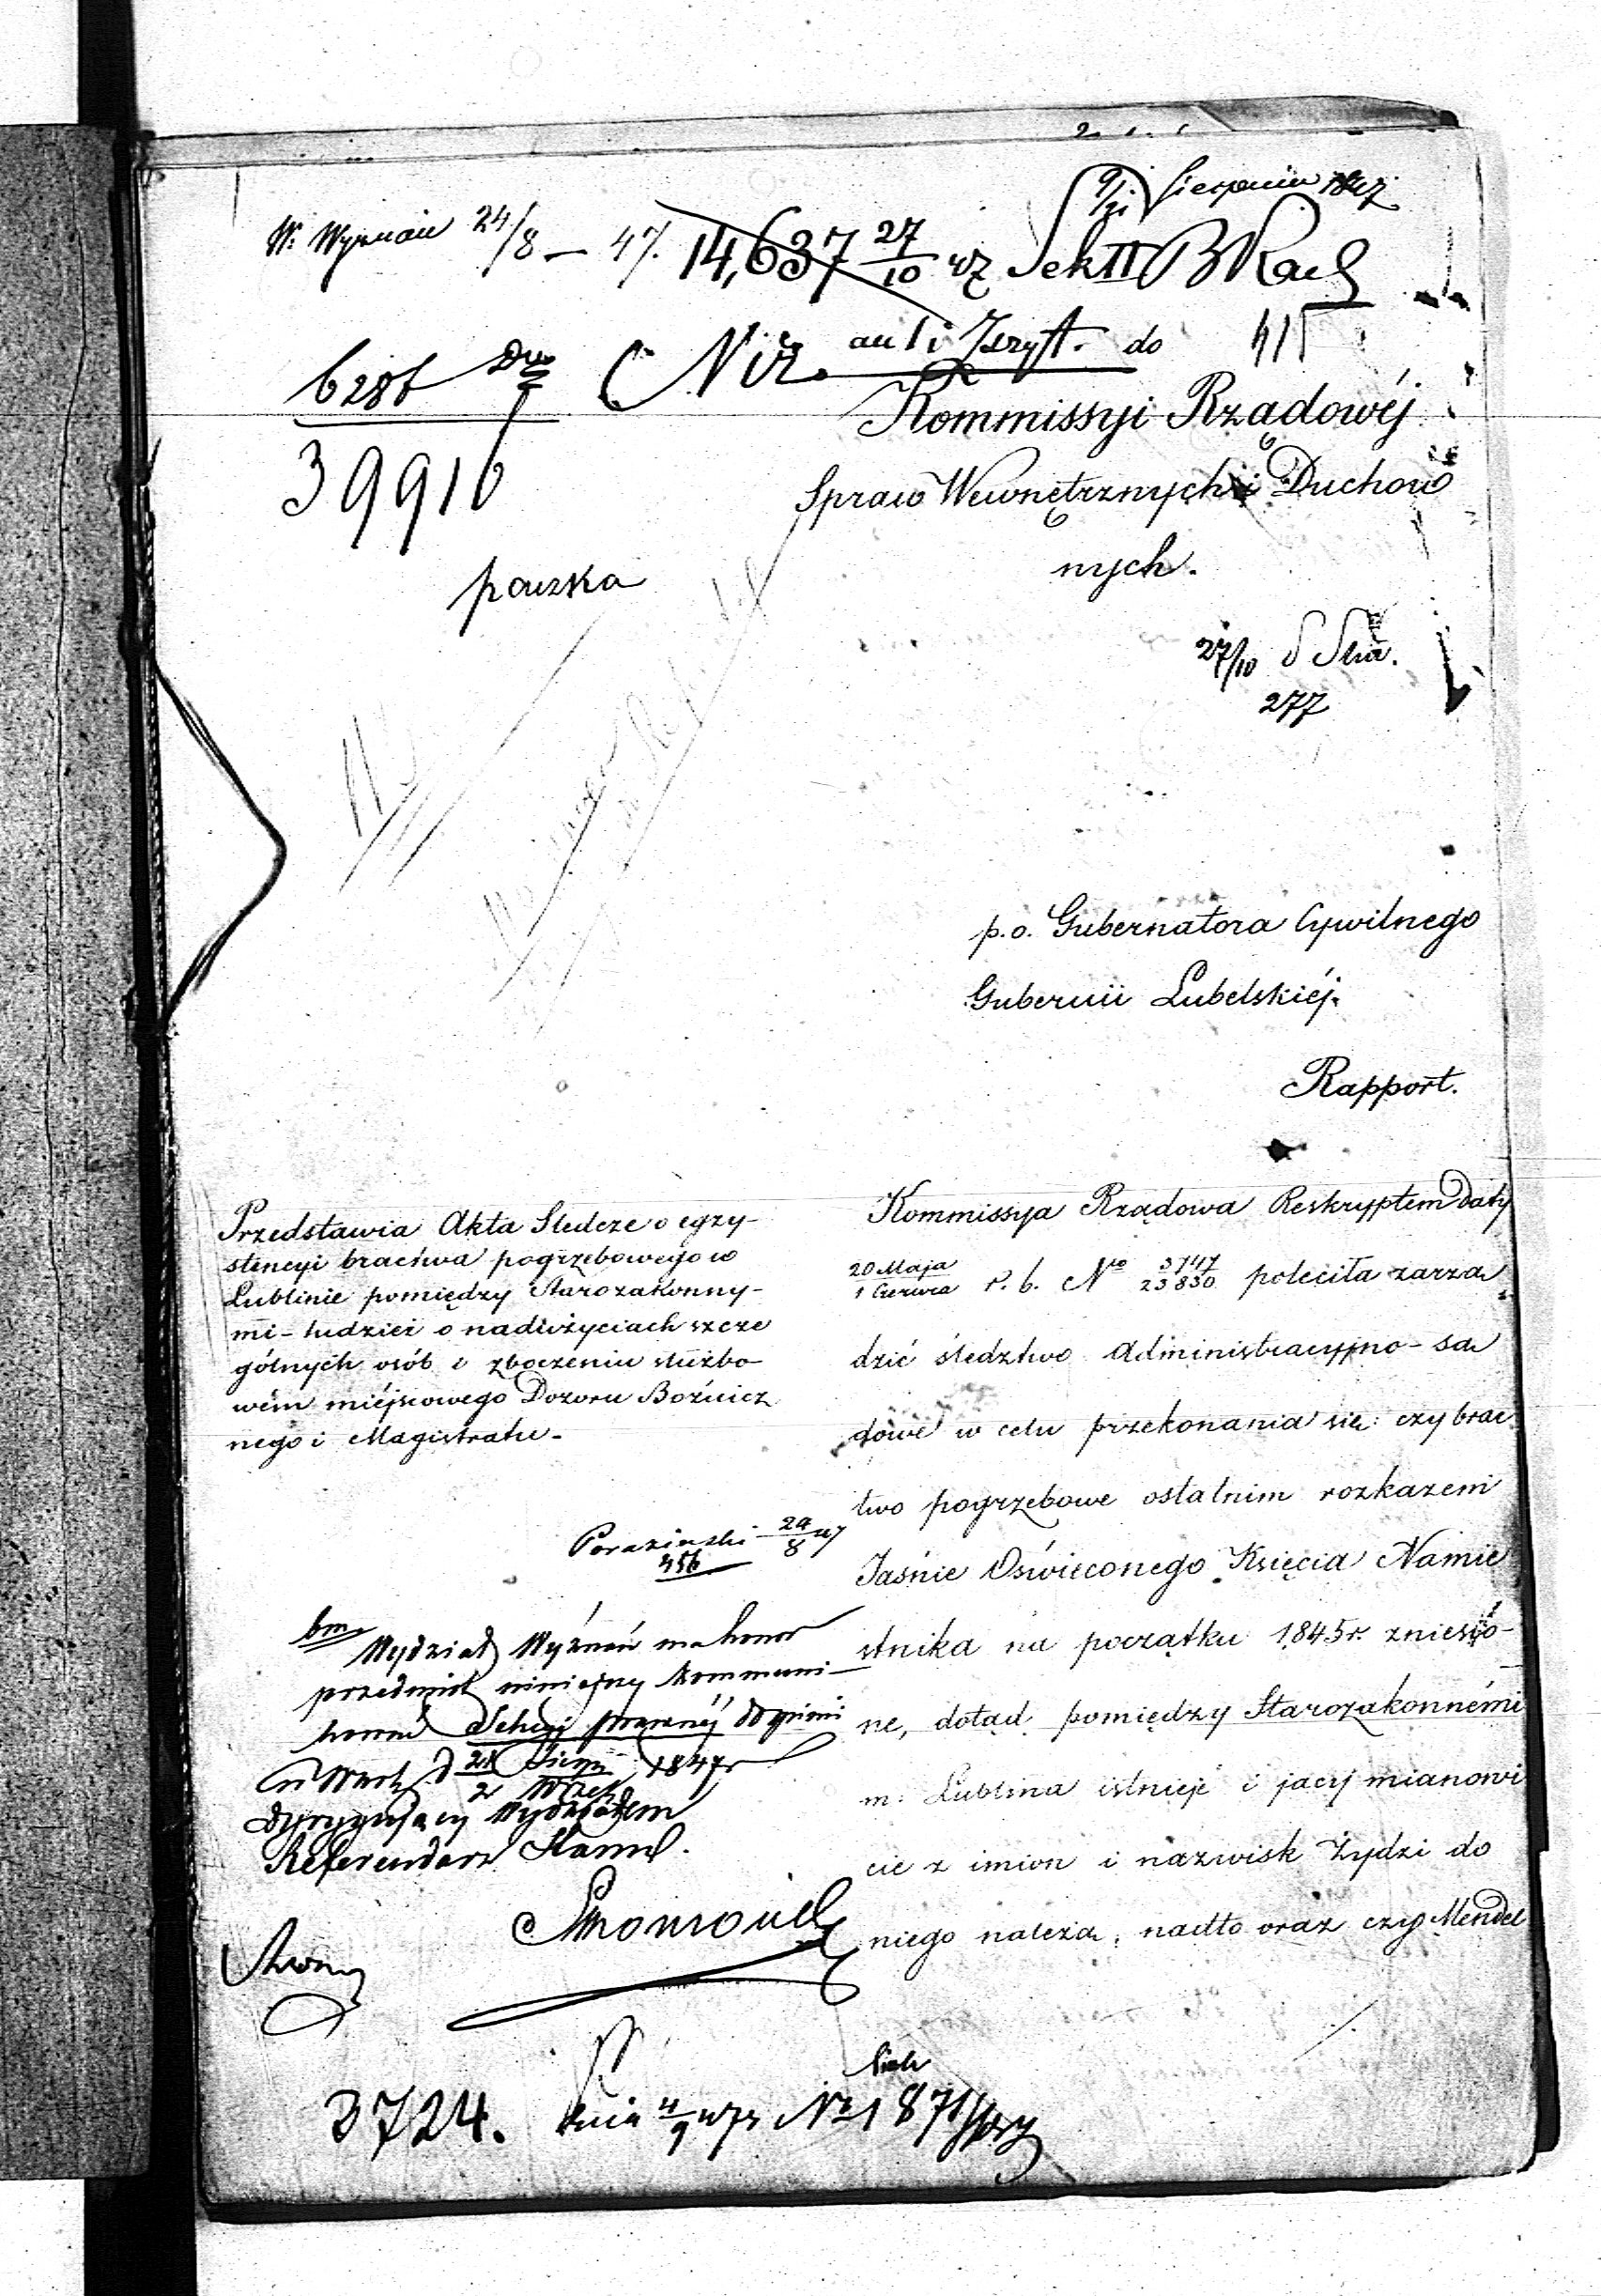 9/21 Sierpnia 1847
W. Wyznań 24/8 — 47. 14,637 27/10 wz Sek II B Rach
6286
39916
do
Kommissyi Rządowéj
Spraw Wewnętrznych i Duchow
nych.
paczka
27/10
277
p.o. Gubernatora Cywilnego
Gubernii Lubelskiéj.
Rapport.
Przedstawia Akta Śledcze o egzy-
stencyi bractwa pogrzebowego w
Lublinie pomiędzy Starozakonny-
mi - tudzież o nadużyciach szcze
gólnych osób i zboczeniu służbo-
wém miéjscowego Dozoru Bożnicz
nego i Magistratu.
24/8 47
456
Wydział Wyznań
przedmiot niniejszy kommuni-
Sekcyi prawnéj do opinii
w Warsz. d 21 Sierp / 2 Wrześ 1847 r
Dyrygujący Wydziałem
Referendarz Stanu.
Kommissya Rządowa Reskryptem daty
20 Maja / 1 Czerwca r. b. No 3747 / 23830 poleciła zarzą
dzić śledztwo Administracyjno-są
dowe w celu przekonania się: czy brac
two pogrzebowe ostatnim rozkazem
Jaśnie Oświeconego Księcia Namie
stnika na początku 1845 r. zniesio-
ne, dotąd pomiędzy Starozakonnémi
m. Lublina istnieje i jacy mianowi
cie z imion i nazwisk Żydzi do
niego należą, nadto oraz czy Mendel
3724. dnia 4/9 47 r No 1871